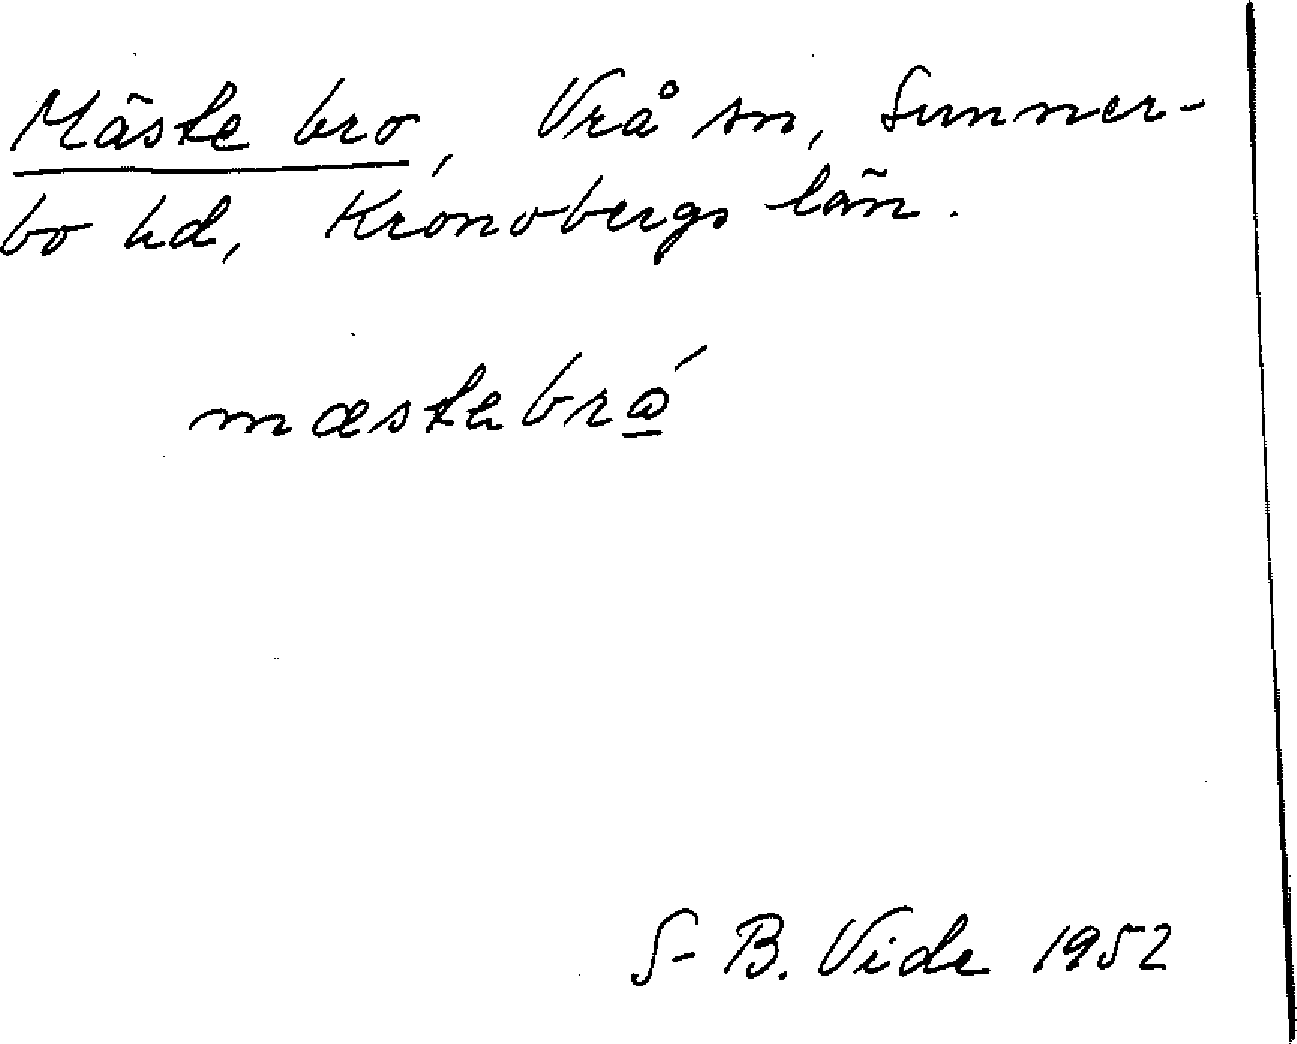 Mäste bro, Vrå sn, Sunner-
bo hd, Kronobergs län.
mæstebrώ̲
S-B. Vide 1952